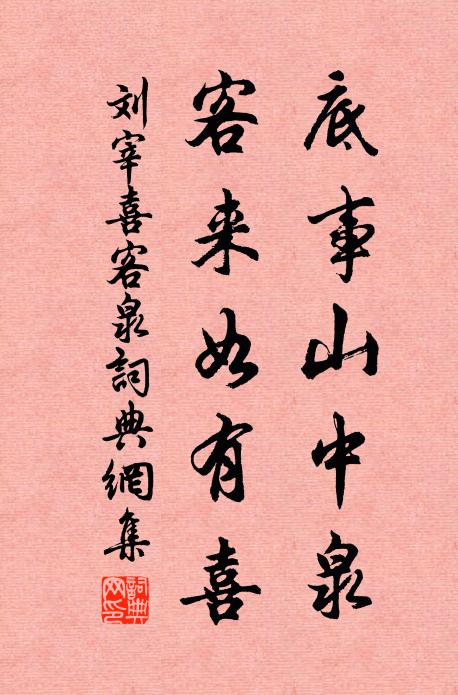 底事山中泉
客来如有喜
刘宰喜客泉詞典網集
詞典網印